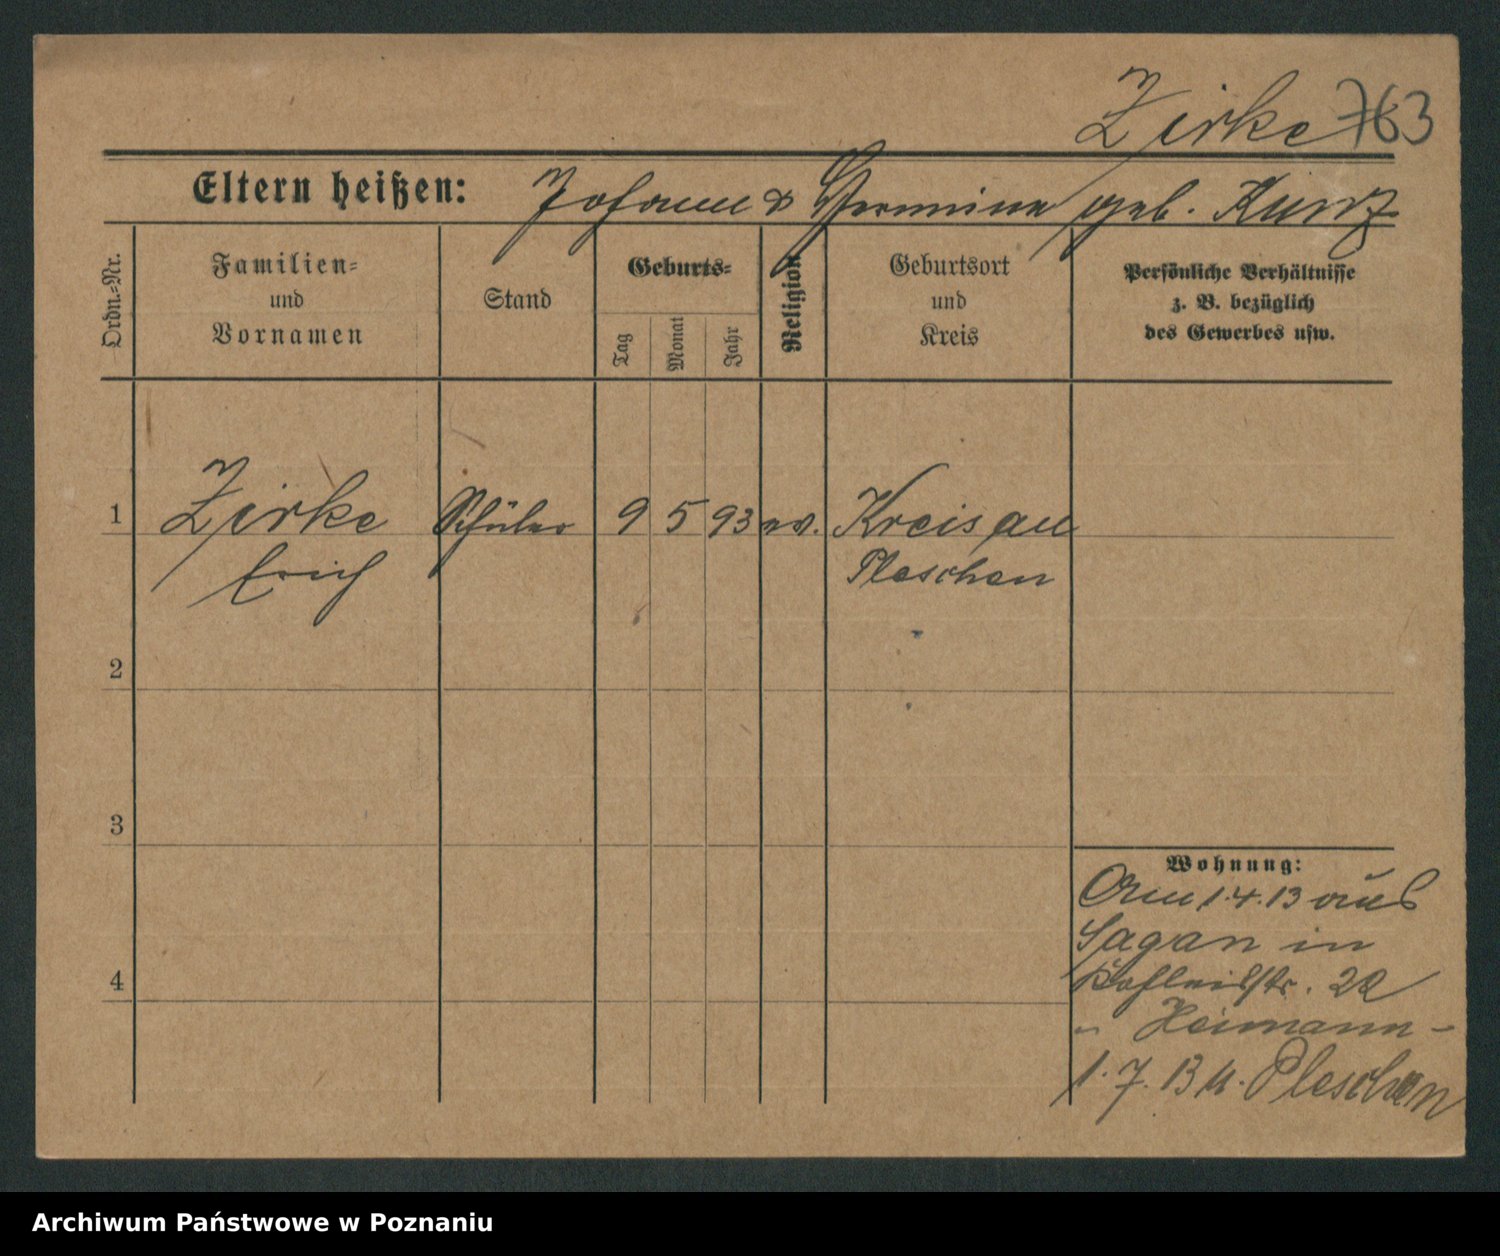 Zirke 763
Eltern heißen: Johann & Hermine geb. Kunz
Ordn.-Nr.
Familien-
und
Vornamen
Stand
Geburts-
Tag
Monat
Jahr
Religion
Geburtsort
und
Kreis
Persönliche Verhältnisse
z. B. bezüglich
des Gewerbes usw.
1 Zirke Schüler 9 5 93 ev. Kreisau
Erich Pleschen
2
3
4
Wohnung:
Am 1.4.13 aus
Sagan in
22
" Heimann -
1.7.13 n. Pleschen
Archiwum Państwowe w Poznaniu